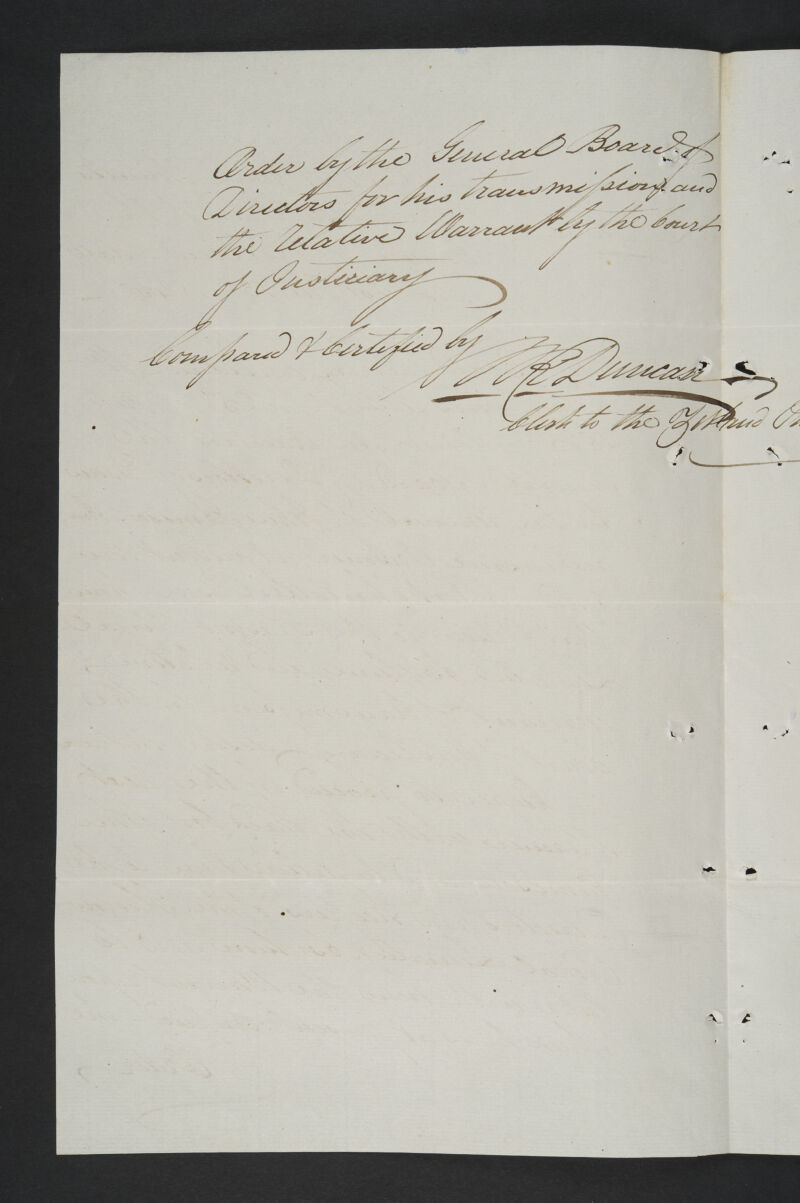 Order by the General Board of
Directors for his transmission and
the relative Warrant by the Court
of Justiciary
Compared & Certified by
Duncan
Clerk to the Zetland